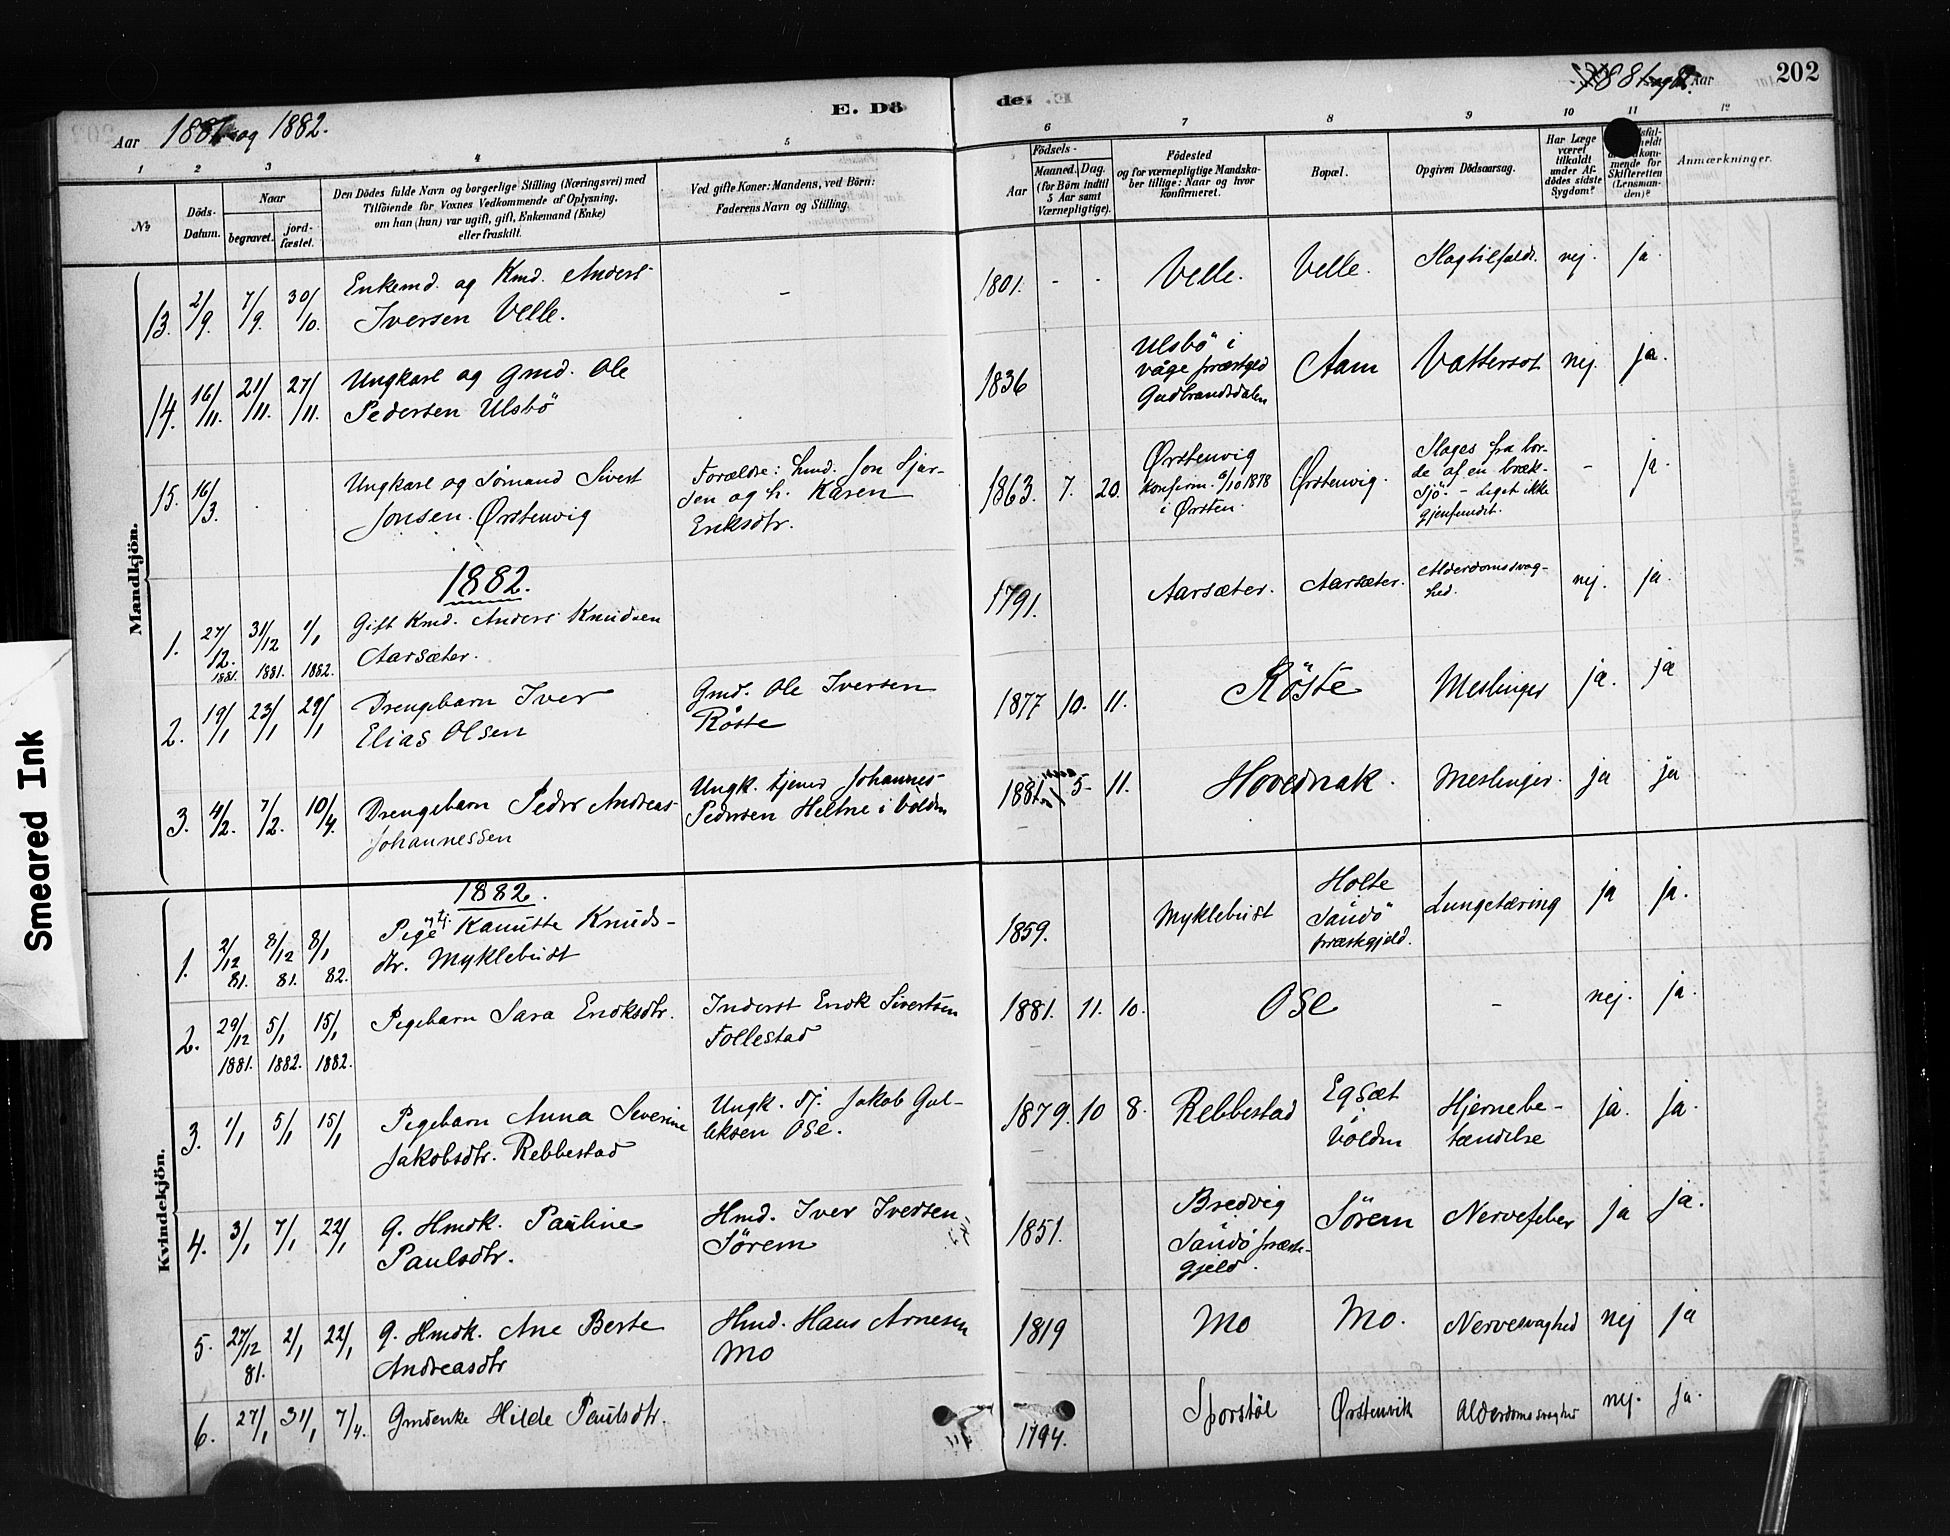 Aar 1881 og 1882.
E. Dö
de.
1881 og 82. Aar
202
1
2
3
4
5
6
7
8
9
10
11
12
№
Döds-
Datum.
Naar
begravet.
jord-
fæstet.
Den Dödes fulde Navn og borgerlige Stilling (Næringsvei) med
Tilföiende for Voxnes Vedkommende af Oplysning,
om han (hun) var ugift, gift, Enkemand (Enke)
eller fraskilt.
Ved gifte Koner: Mandens, ved Börn:
Faderens Navn og Stilling.
Födsels-
Aar
Maaned. Dag.
(for Börn indtil
5 Aar samt
Værnepligtige).
Födested
og for værnepligtige Mandska-
ber tillige: Naar og hvor
konfirmeret.
Bopæl.
Opgiven Dödsaarsag.
Har Læge
været
tilkaldt
under Af-
dödes sidste
Sygdom?
mende for
Skifteretten
(Lensman-
den)?
Anmærkninger.
Mandkjön.
13. 2/9. 7/9. 30/10. Enkemd. og Kmd. Anders
Iversen Velle. - 1801. - - Velle. Velle. Slagtilfælde. nej. ja.
14. 16/11. 21/11. 27/11. Ungkarl og Gmd. Ole
Pedersen Ulsbö 1836 Ulsbö i
våge præstgld
Gudbrandsdalen Aam Vattersot nej. ja.
15. 16/3. Ungkarl og Sømand Sivert
Jonsen Ørstenvig Forældre: Jon Sjur-
sen og h. Karen
Eriksdtr. 1863. 7. 20. Ørstenvig
Konfirm. 6/10 1878
i Ørsten. Ørstenvig. Slages fra bor-
de af en bræk-
sjö. - liget ikke
gjenfundet. - ja.
1882.
1. 27/12. 1881. 31/12 1881. 1/1 1882. Gift Kmd. Anders Knudsen
Aarsæter. 1791. Aarsæter. Aarsæter. Alderdomssvag-
hed. nej. ja.
2. 19/1 23/1 29/1 Drengebarn Iver
Elias Olsen Gmd. Ole Iversen
Röste 1877 10. 11. Röste Meslinger ja. ja
3. 4/2. 7/2. 10/4. Drengebarn Peder Andreas
Johannessen Ungk. tjener Johannes
Pedersen Heltne i Volden 1881. 5- 11. Hovednak. Meslinger. ja ja
Kvindekjön.
1882.
1. 2/12 81. 8/12 81. 8/1 82. Pige Kanutte Knuds-
dtr. Myklebust 1859. Myklebust Holte
Sandö
præstgjeld. Lungetæring ja ja.
2. 29/12 1881. 5/1 1882. 15/1 1882. Pigebarn Sara Eriksdtr. Inderst Erik Sivertsen
Follestad 1881. 11. 10. Ose - nej. ja.
3. 1/1 5/1 15/1 Pigebarn Anna Severine
Jakobsdtr. Rebbestad Ungk. tj. Jakob Gul-
leksen Ose. 1879. 10 8. Rebbestad Egsæt
i
Volden Hjernebe-
tændelse ja. ja.
4. 3/1 7/1 22/1 G. Hmdk. Pauline
Paulsdtr. Hmd. Iver Iversen
Sörem 1851. Bredvig
Sandö præst-
gjeld. Sörem Nervefeber ja ja.
5. 27/12 81. 2/1 22/1 G. Hmdk. Ane Berte
Andreasdtr Hmd. Hans Arnesen
Mo 1819 Mo Mo. Nervesvaghed nej ja
6. 27/1 31/1 7/4. Gmdenke Hilde Paulsdtr. 1794. Sporstöl Ørstenvik Alderdomssvaghed nej. ja.
Smeared Ink